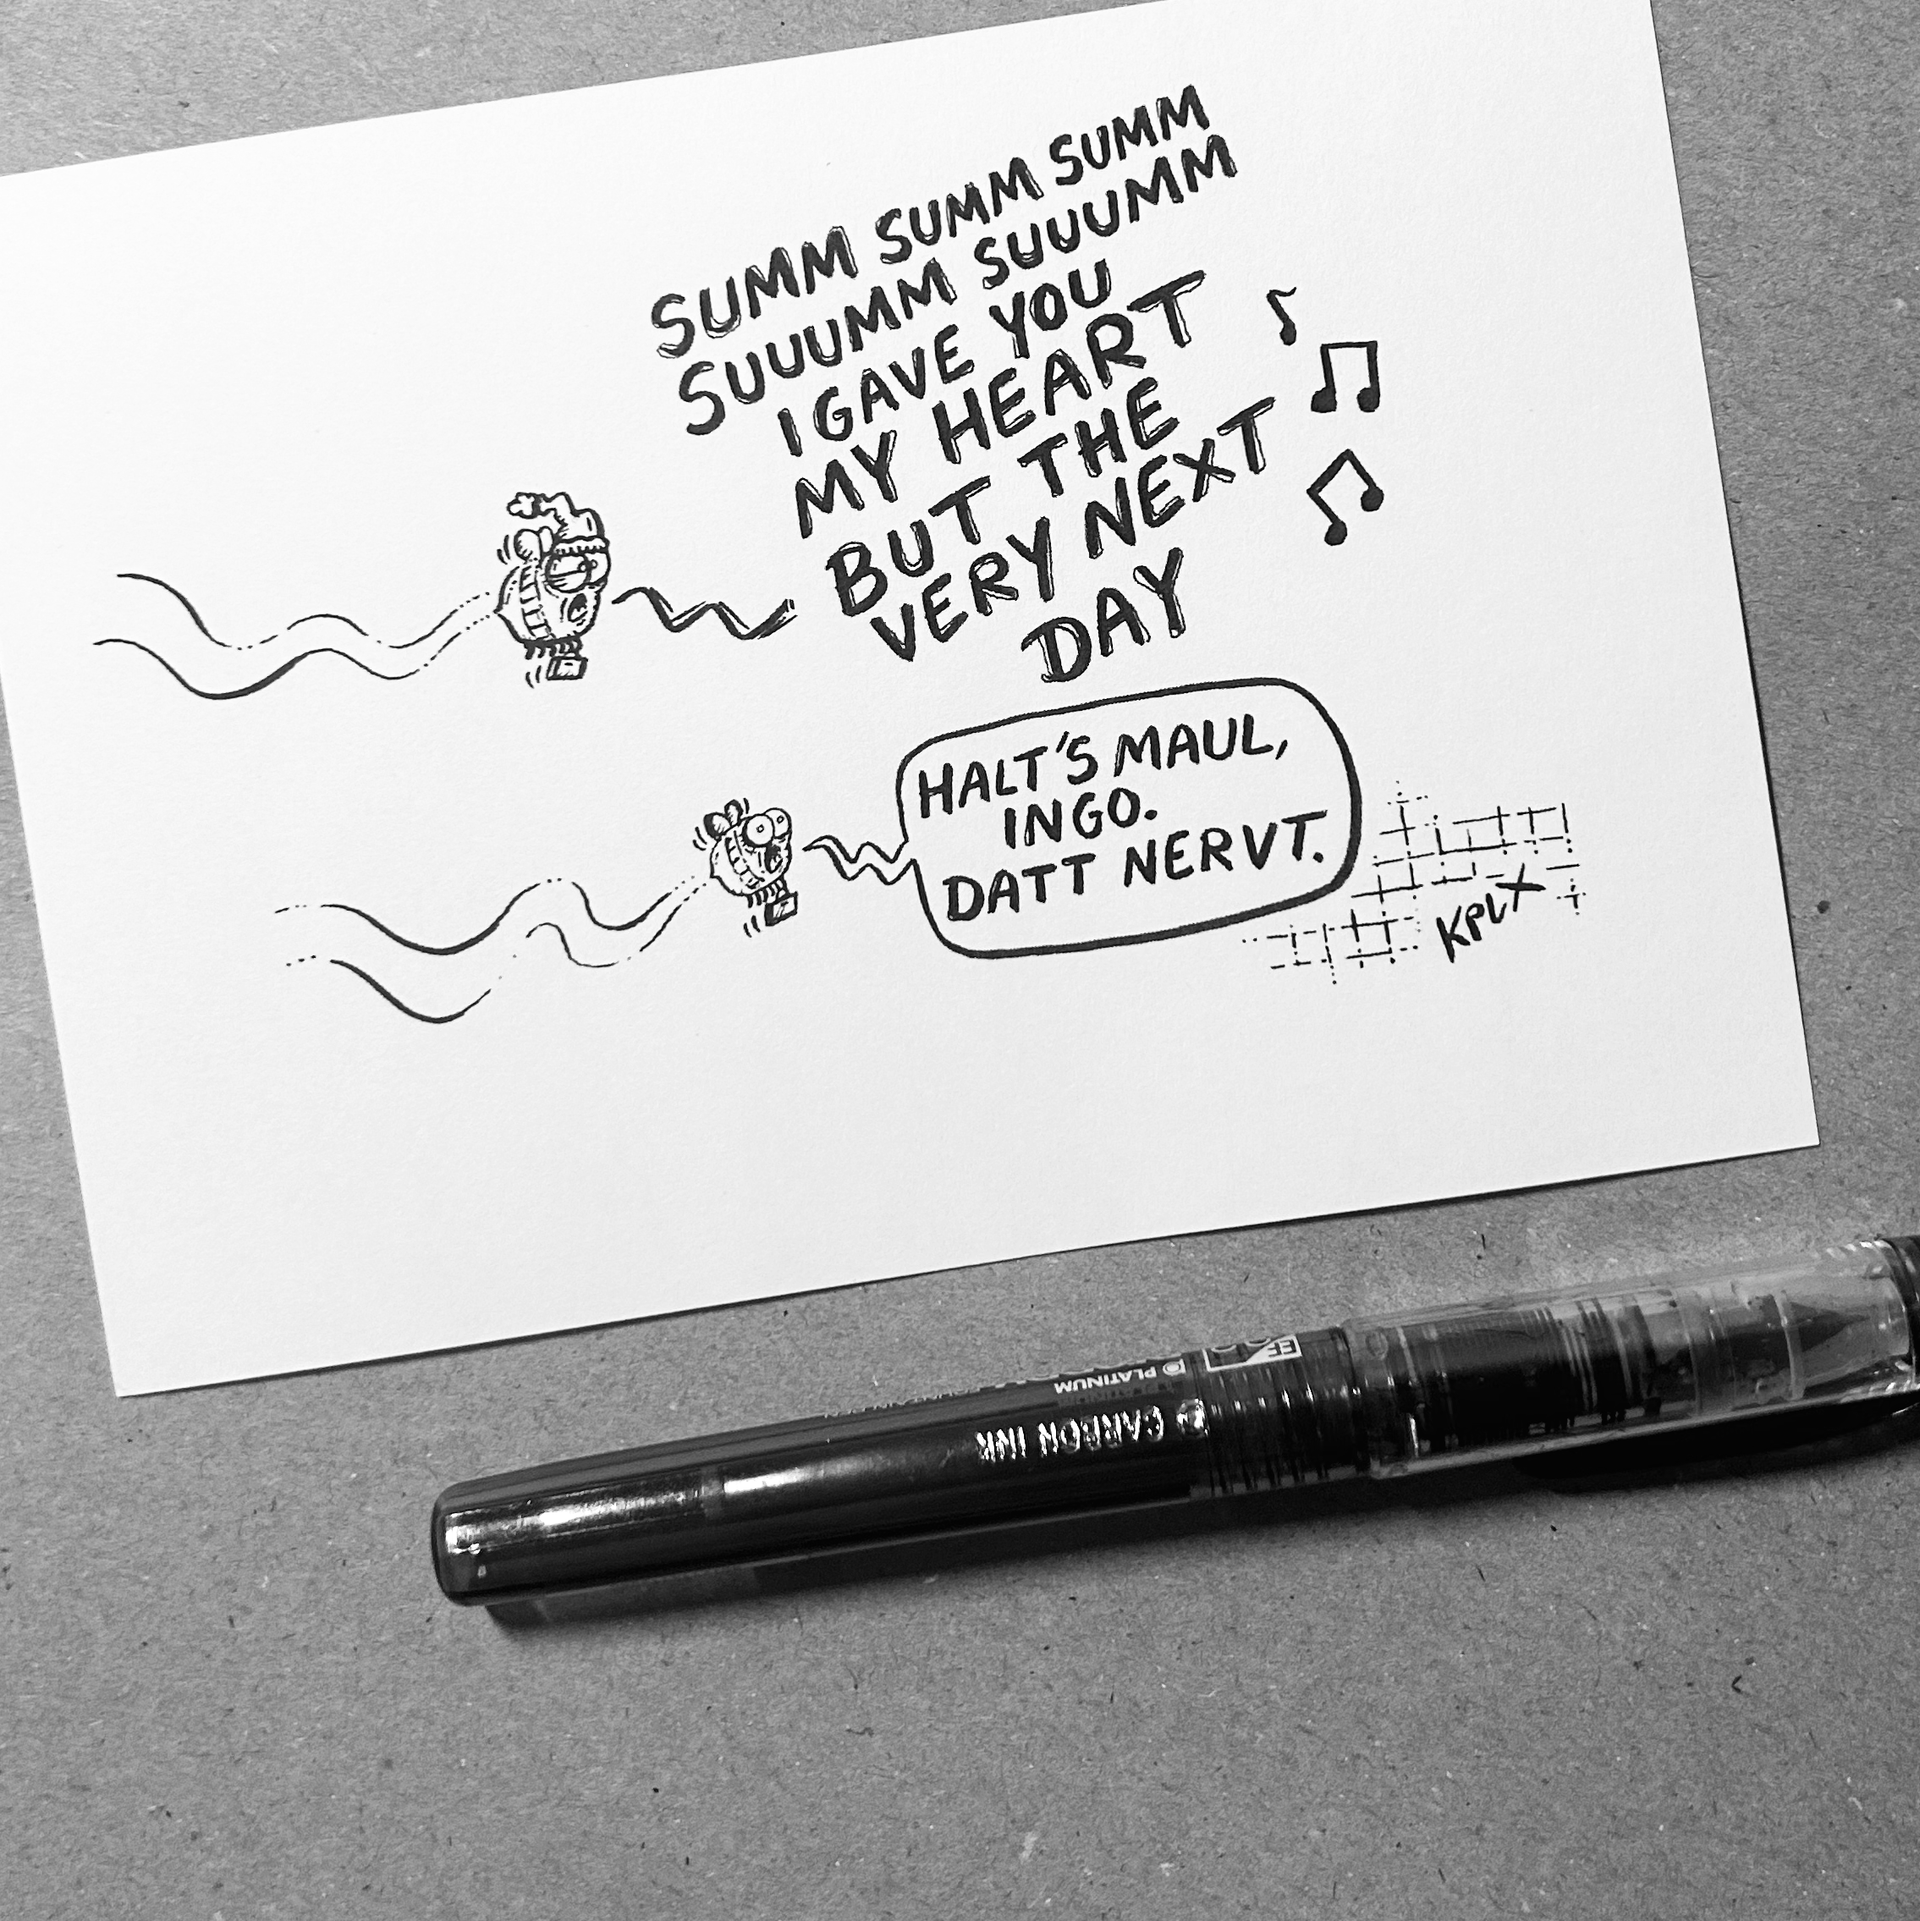 SUMM SUMM SUMM
SUUUMM SUUUMM
I GAVE YOU
MY HEART
BUT THE
VERY NEXT
DAY
HALT'S MAUL,
INGO.
DATT NERVT.
KPLX
EF
PLATINUM
CARBON INK